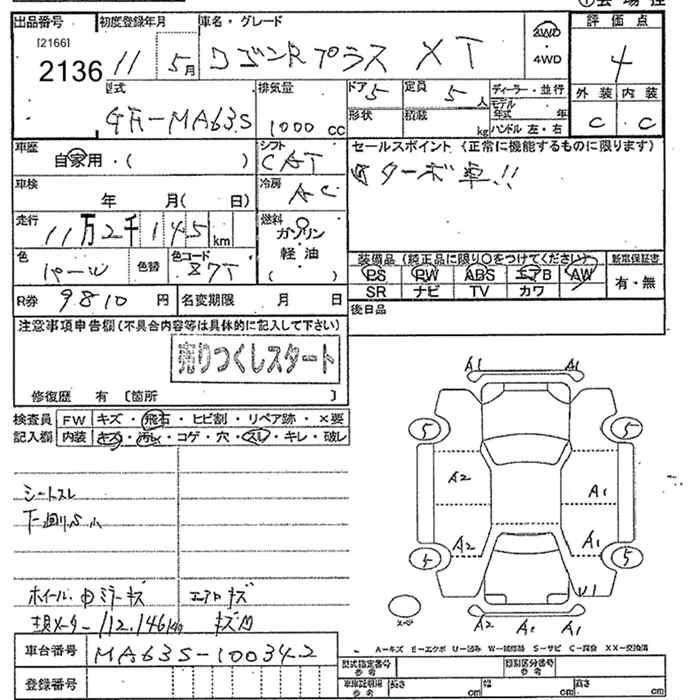 ①会場控
出品番号 初度登録年月 車名・グレード 評価点
[2166] 2136 11 5月 ワゴンRプラス XT 2WD ・4WD 4
型式 GF-MA63S 排気量 1000 cc ドア 5 定員 5人 ディーラー・並行
形状 積載 kg モデル年式 年 ハンドル 左・右 外装 内装 C C
車歴 自家用・( ) シフト CAT セールスポイント (正常に機能するものに限ります)
車検 年 月( 日) 冷房 AC ターボ車!!
走行 11万2千145km 燃料 ガソリン 軽油 ( )
色 パール 色替 色コード Z7T 装備品 (純正品に限り○をつけてください) 新車保証書
PS PW ABS エアB AW 有・無
SR ナビ TV カワ
R券 9810円 名変期限 月 日 後日品
注意事項申告欄(不具合内容等は具体的に記入して下さい)
売りつくしスタート
修復歴 有 〔箇所 〕
検査員 FW キズ・飛石・ヒビ割・リペア跡・×要
記入欄 内装 キズ・汚れ・コゲ・穴・スレ・キレ・破レ
シートスレ
下廻りS小
ホイール・中ミラーキズ エアロキズ
現メーター112,146km
車台番号 MA63S-100342
登録番号
A1 A1
5 5
A2 A1
A2 A1
5 5
U1
スペア
A2 A1 A1
A-キズ E-エクボ U-凹み W-補修跡 S-サビ C-腐食 XX-交換済
型式指定番号 参考 類別区分番号 参考
車庫証明用 参考 長さ cm 幅 cm 高さ cm